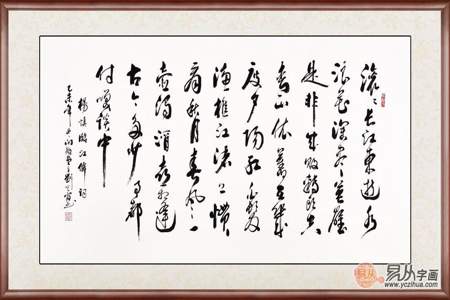 滚滚长江東逝水
浪花淘尽英雄
是非成敗转头空
青山依舊在幾
度夕阳红白髮
渔樵江渚上惯
看秋月春风一
壶浊酒喜相逢
古今多少事都
付笑谈中
杨慎临江仙词
乙未年
易从字画
www.yczihua.com